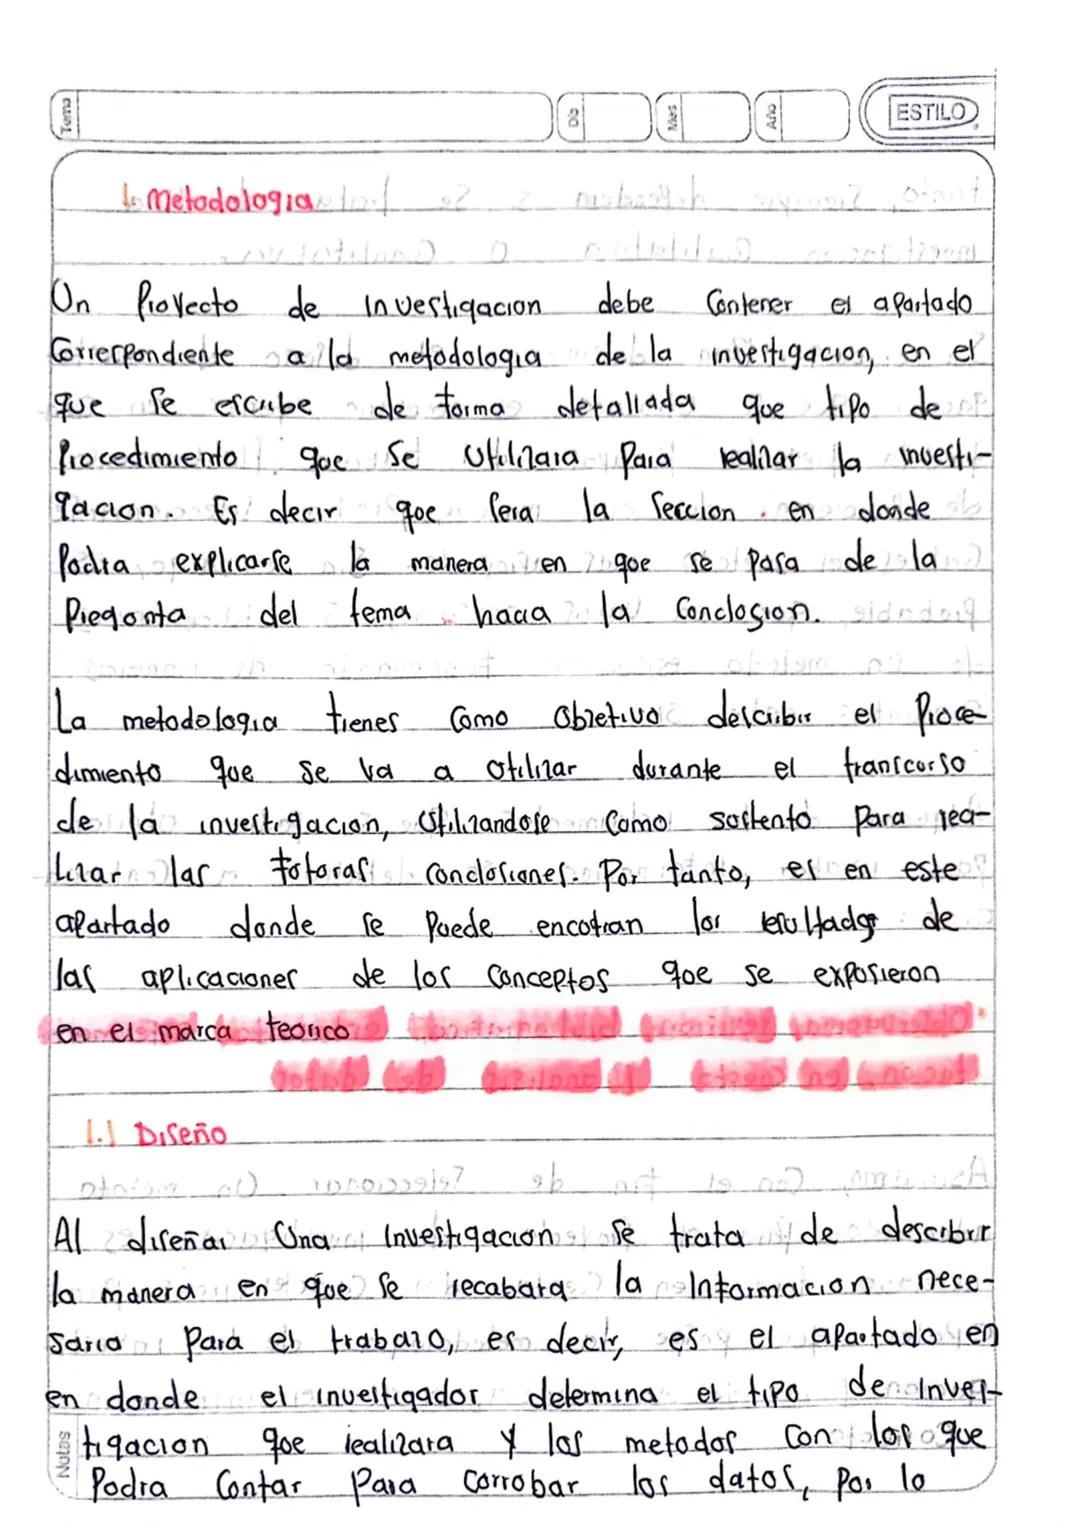 Tema
Dia
Mes
Año
ESTILO
1. Metodologia
Un Proyecto de investigacion debe Contener el apartado
Correspondiente a la metodologia de la investigacion, en el
que se escribe de forma detallada que tipo de
Procedimiento que se Utilizara Para realizar la investi-
gacion. Es decir que sera la seccion. en donde
Podra explicarse la manera en que se pasa de la
Pregonta del tema hacia la Conclosion.
La metodologia tienes Como Objetivo describir el Proce-
dimiento que se va a otilizar durante el transcurso
de la investigacion, Utilizandose Como sostento Para rea-
lizar las fotoras conclosiones. Por tanto, es en este
apartado donde se Puede encotran los resultados de
las aplicaciones de los Conceptos qoe se exposieron
en el marca teorico
1.1 Diseño
Al diseñar Una Investigacion se trata de describir
la manera en que se recabara la Informacion nece-
saria Para el trabajo, es decir, es el apartado en
en donde el investigador determina el tipo de inves-
tigacion qoe realizara y los metodos con los que
Podra Contar Para corrobar los datos, por lo
Notas